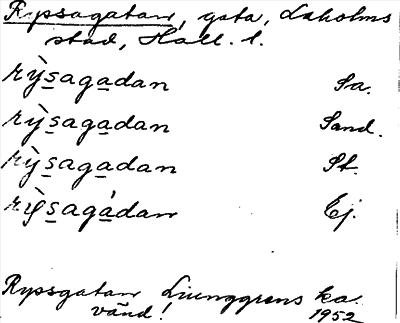 Rypsagatan, gata, Laholms
stad, Hall. l.
rỳsagadan Sa.
rỳsagadan Sand.
rỳsagadan St.
rỳsagádan Ej.
Rypsgatan Ljunggrens ka.
vänd! 1952